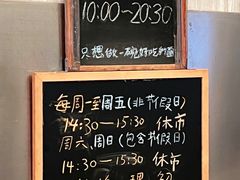 10:00-20:30
只想做一碗好吃的面
每周一至周五(非节假日)
14:30—15:30 休市
周六、周日(包含节假日)
14:30—15:30 休市